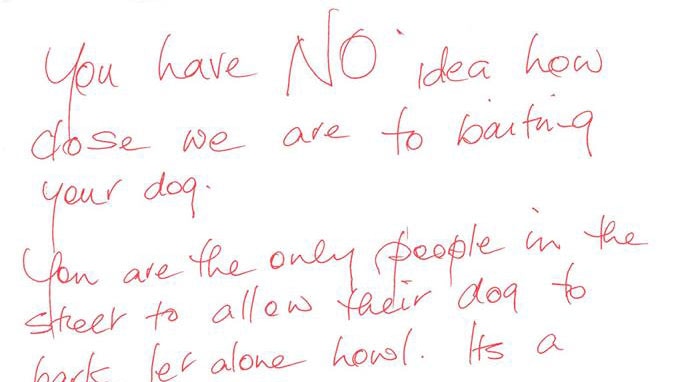 You have NO idea how
close we are to baiting
your dog.
You are the only people in the
street to allow their dog to
bark let alone howl. Its a